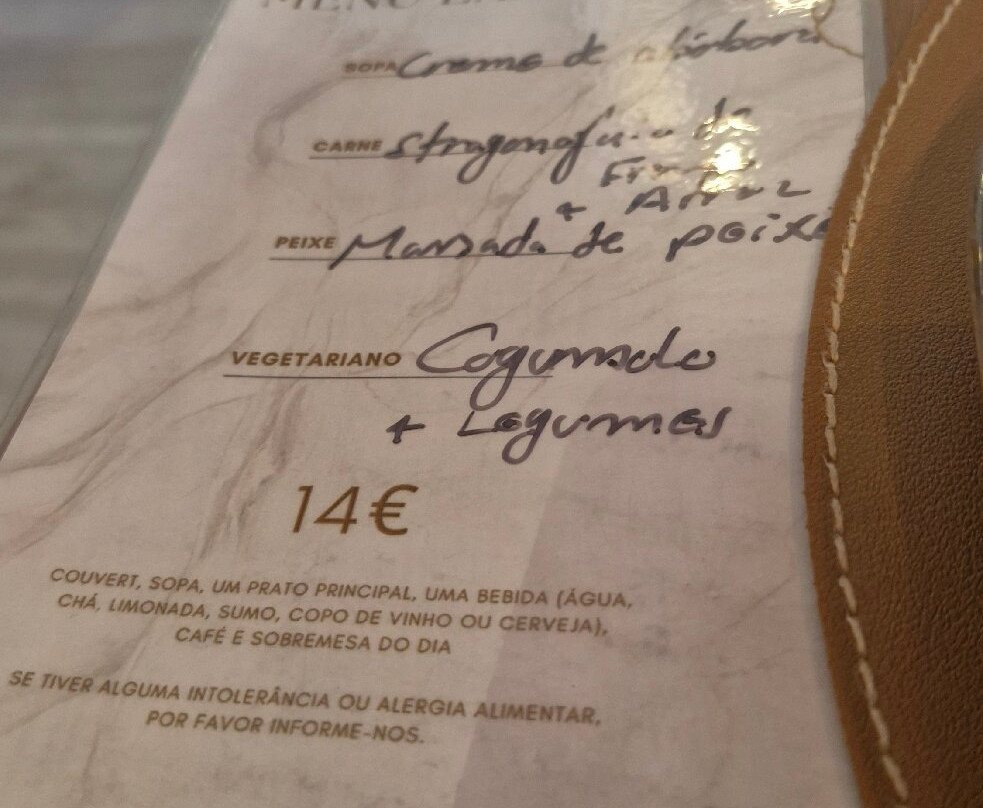 MENU
SOPA Creme de abóbora
CARNE Strogonofe de
+ Arroz
PEIXE Massada de peixe
VEGETARIANO Cogumelo
+ Legumes
14€
COUVERT, SOPA, UM PRATO PRINCIPAL, UMA BEBIDA (ÁGUA,
CHÁ, LIMONADA, SUMO, COPO DE VINHO OU CERVEJA),
CAFÉ E SOBREMESA DO DIA
SE TIVER ALGUMA INTOLERÂNCIA OU ALERGIA ALIMENTAR,
POR FAVOR INFORME-NOS.